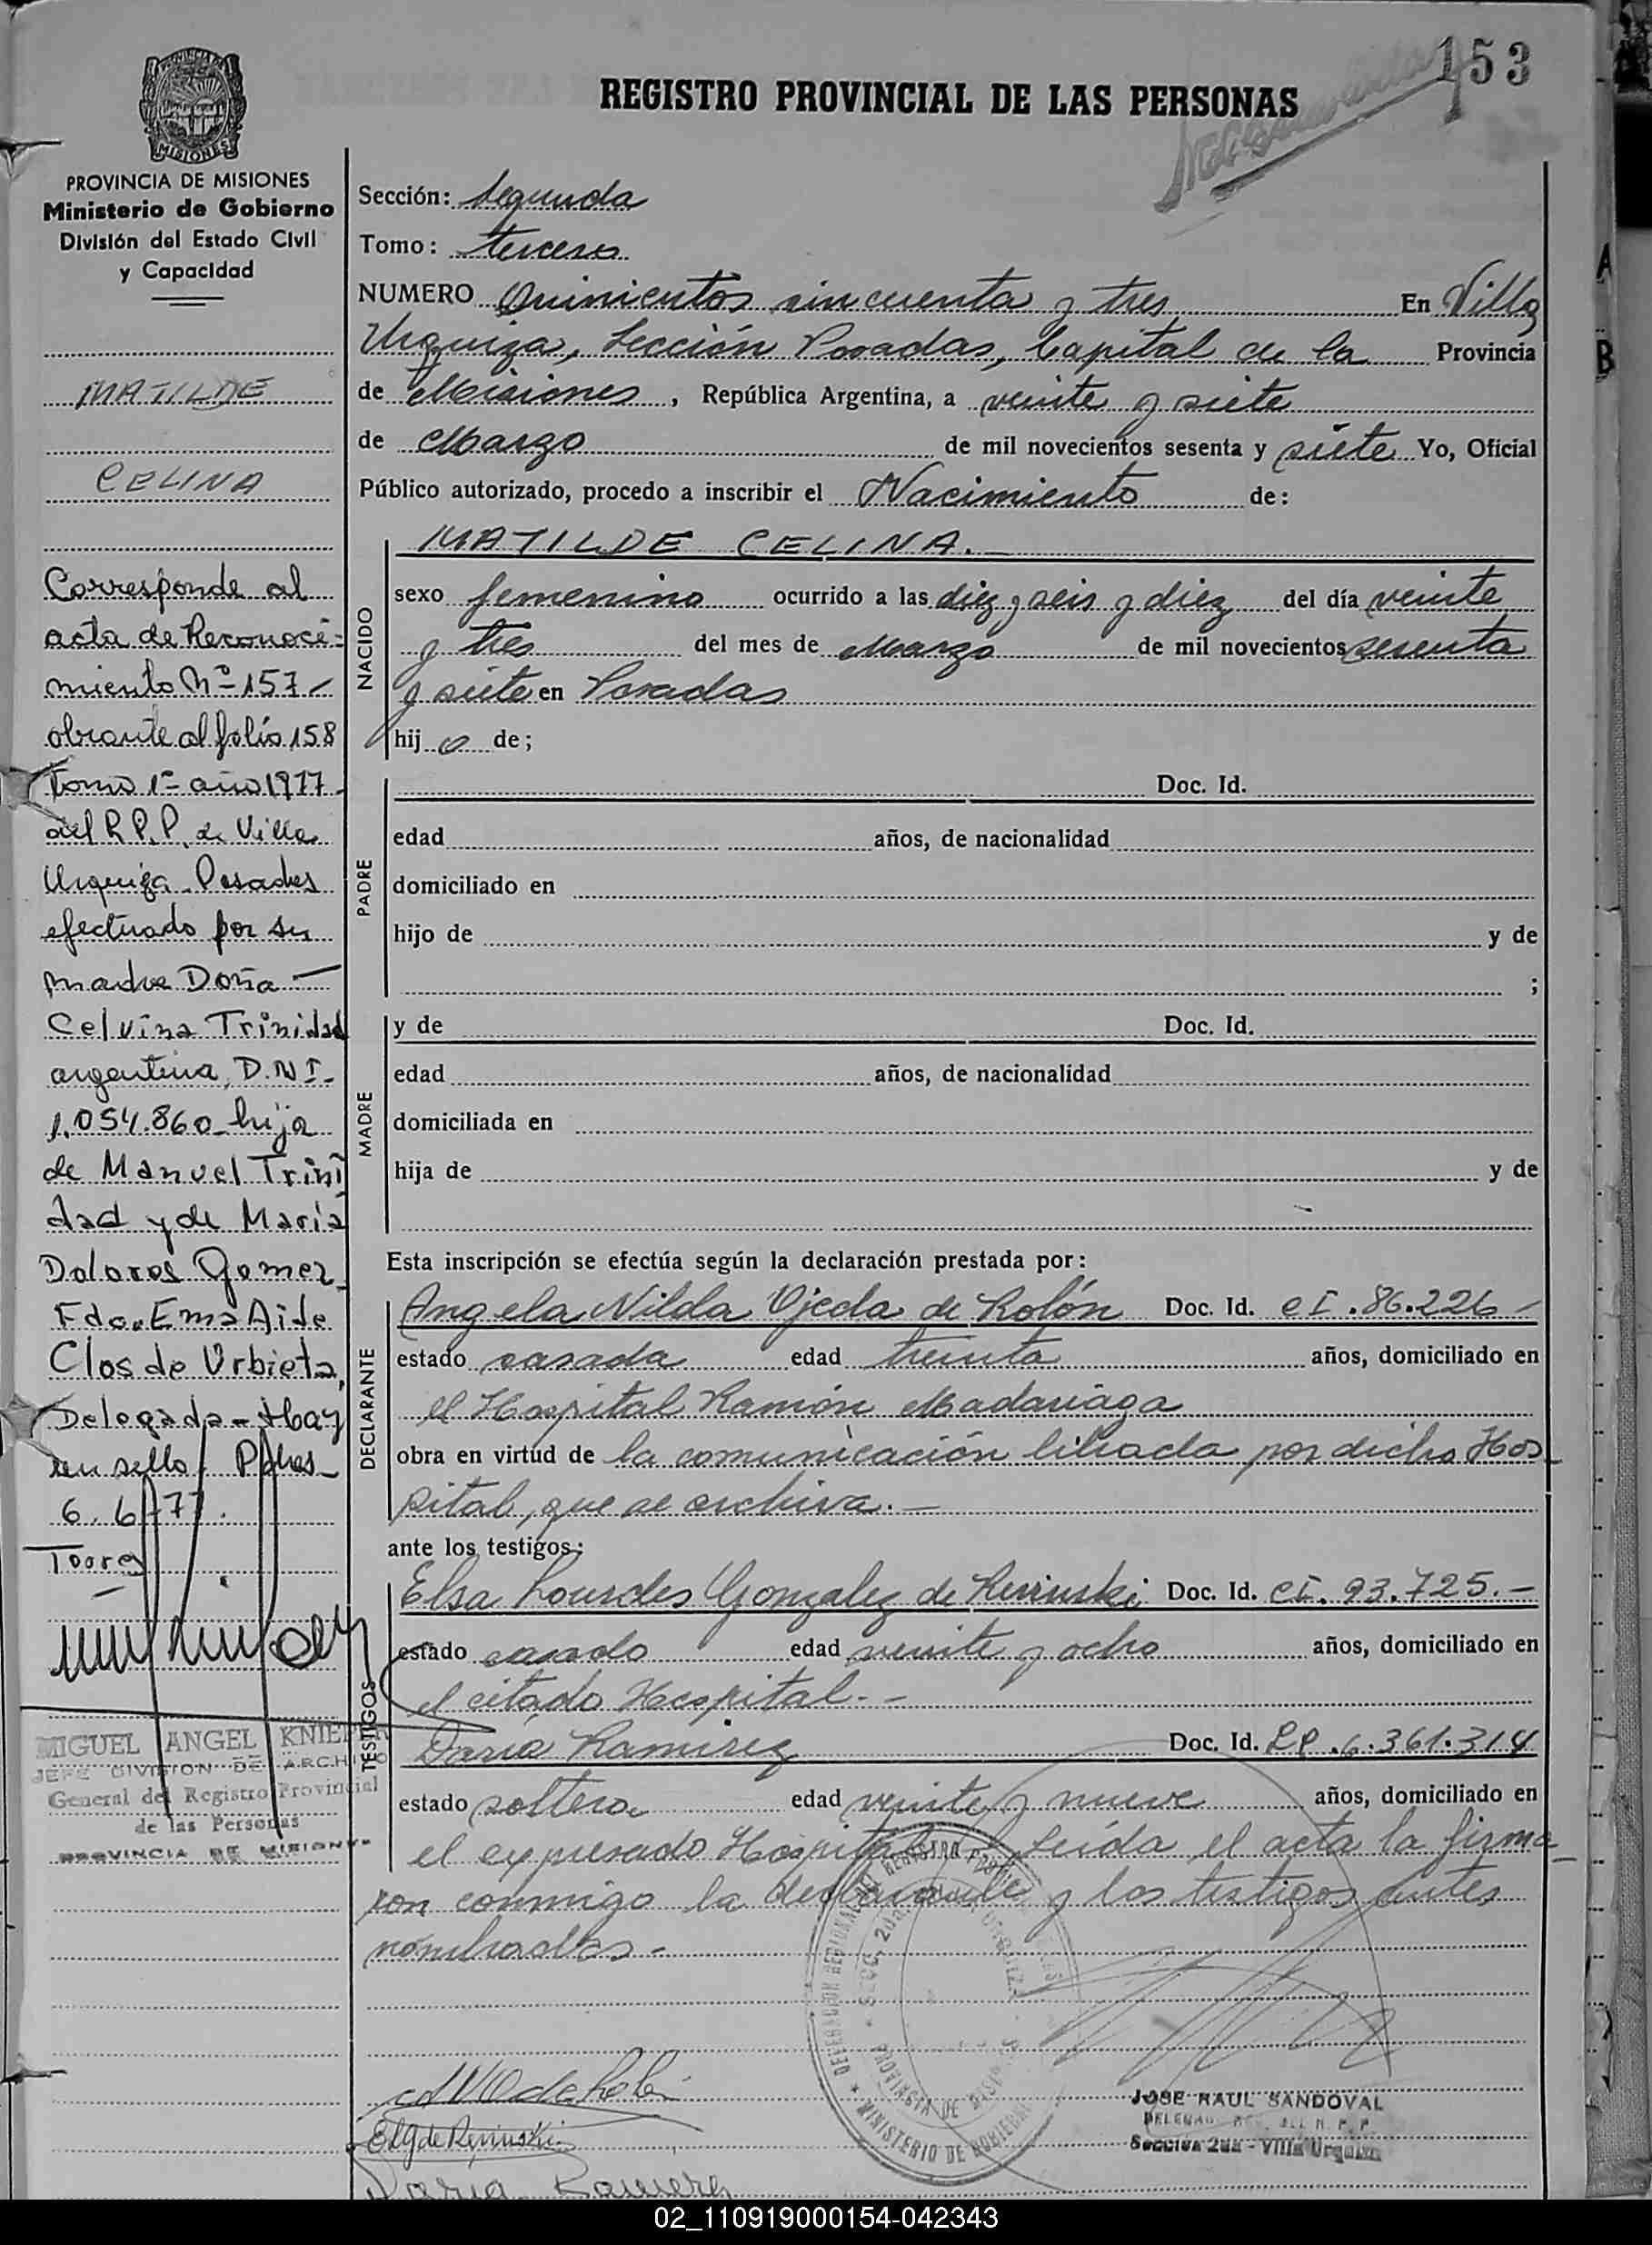 153
REGISTRO PROVINCIAL DE LAS PERSONAS
MISIONES
PROVINCIA DE MISIONES
Ministerio de Gobierno
División del Estado Civil
y Capacidad
MATILDE
CELINA
Corresponde al
acta de Reconoci=
miento Nº 157
obrante al folio 158
Tomo 1º año 1977
del R.P.P. de Villa
Urquiza Posadas
efectuado por su
madre Doña
Celvina Trinidad
argentina, D.N.I.
1.054.860 hija
de Manuel Trini
dad y de María
Dolores Gomez
Fdo. Ema Aide
Clos de Urbieta,
Delegada - Hay
un sello. Pdas
6.6.77.
MIGUEL ANGEL KNIE
JEFE DIVISION DE ARCHIVO
General del Registro Provincial
de las Personas
PROVINCIA DE MISIONES
Sección: Segunda
Tomo: tercero
NUMERO Quinientos cincuenta y tres En Villa
Urquiza, Sección Posadas, Capital de la Provincia
de Misiones, República Argentina, a veinte y siete
de Marzo de mil novecientos sesenta y siete Yo, Oficial
Público autorizado, procedo a inscribir el Nacimiento de:
MATILDE CELINA.
NACIDO
sexo femenino ocurrido a las diez y seis y diez del día veinte
y tres del mes de Marzo de mil novecientos sesenta
y siete en Posadas
hij o de;
PADRE
Doc. Id.
edad años, de nacionalidad
domiciliado en
hijo de y de
;
MADRE
y de Doc. Id.
edad años, de nacionalidad
domiciliada en
hija de y de
Esta inscripción se efectúa según la declaración prestada por:
DECLARANTE
Angela Nilda Ojeda de Rolón Doc. Id. CI.86.226
estado casada edad treinta años, domiciliado en
el Hospital Ramón Madariaga
obra en virtud de la comunicación librada por dicho Hos
pital, que se archiva.
ante los testigos:
TESTIGOS
Elsa Lourdes Gonzalez de Doc. Id. CI.93.725.-
estado casado edad veinte y ocho años, domiciliado en
el citado Hospital.-
Daría Ramirez Doc. Id. LC.6.361.314
estado soltera edad veinte y nueve años, domiciliado en
el expresado Hospital leída el acta la firma
ron conmigo la declarante y los testigos antes
nombrados-
MINISTERIO DE GOBIERNO
PROVINCIA DE MISIONES
JOSE RAUL SANDOVAL
Sección 2da - Villa Urquiza
02_110919000154-042343